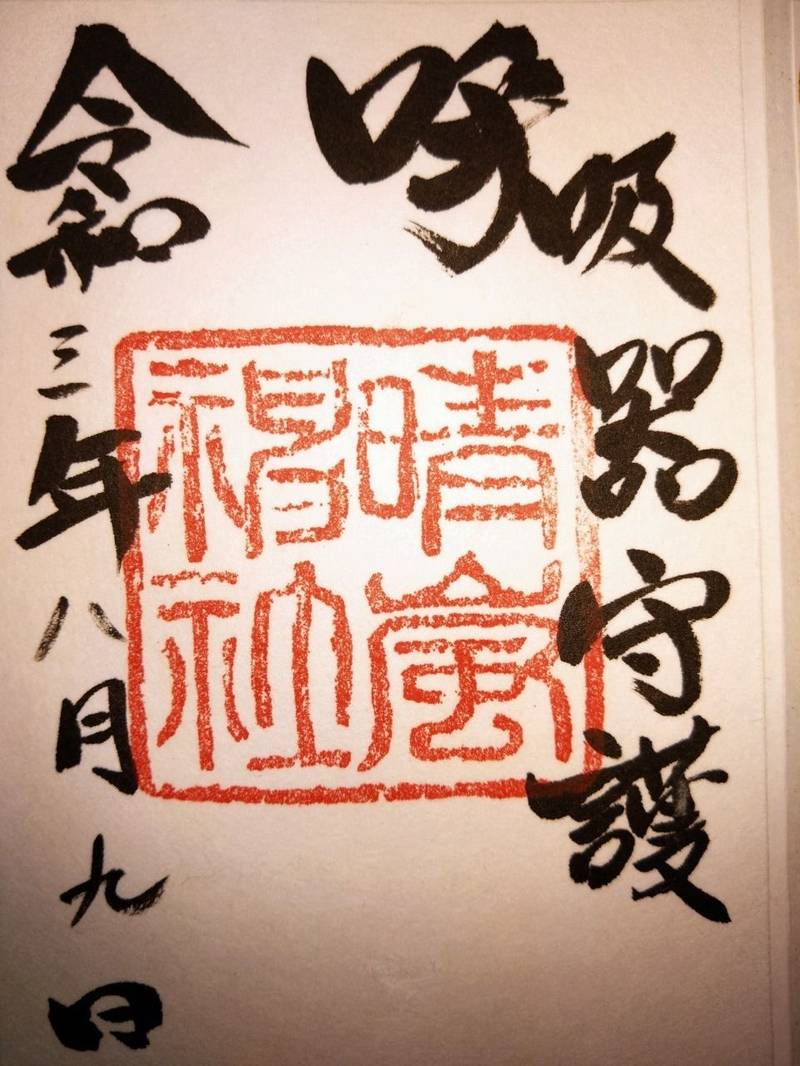 呼吸器守護
晴嵐
神社
令和三年八月九日